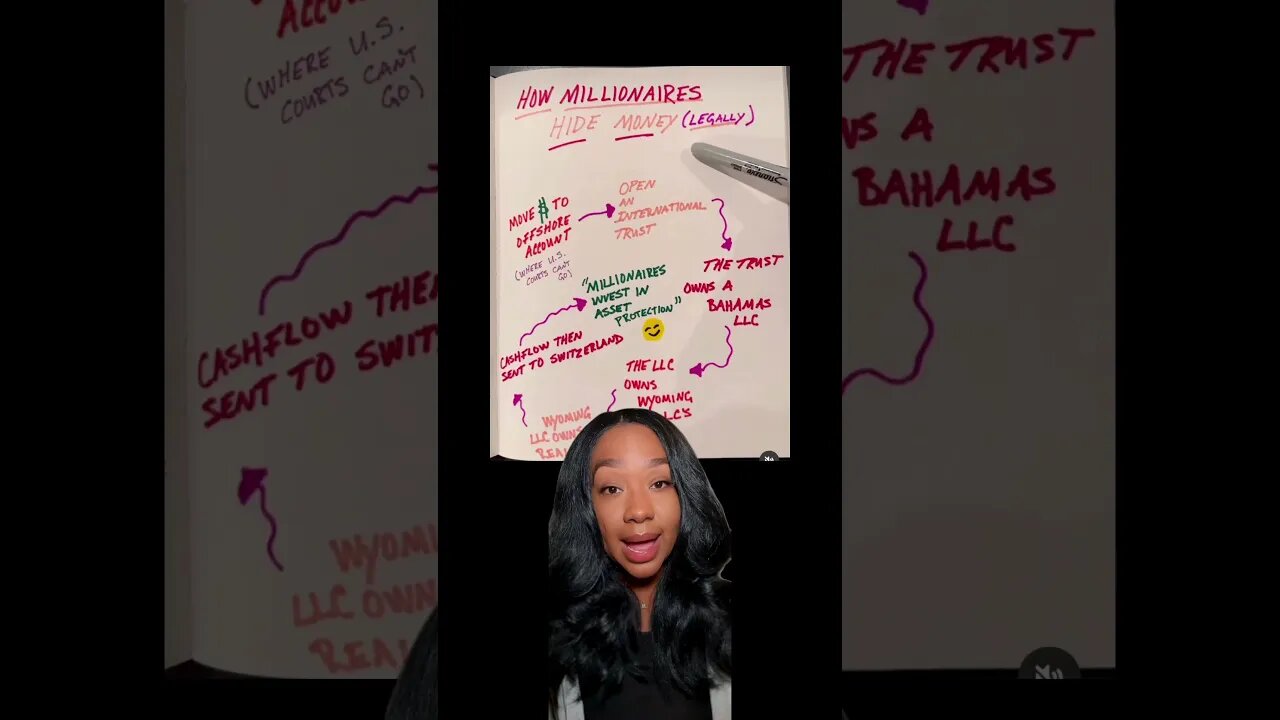 HOW MILLIONAIRES
HIDE MONEY (LEGALLY)
Sharpie
MOVE $ TO
OFFSHORE
ACCOUNT
(WHERE U.S.
COURTS CAN'T
GO)
OPEN
AN
INTERNATIONAL
TRUST
THE TRUST
OWNS A
BAHAMAS
LLC
THE LLC
OWNS
WYOMING
LC'S
WYOMING
LLC OWNS
REAL
CASHFLOW THEN
SENT TO SWITZERLAND
"MILLIONAIRES
INVEST IN
ASSET
PROTECTION"
ACCOUNT
(WHERE U.S.
COURTS CAN'T
GO)
CASHFLOW THEN
SENT TO SWITZ
WYOMI
LLC OWN
REAL
THE TRUST
NS A
BAHAMAS
LLC